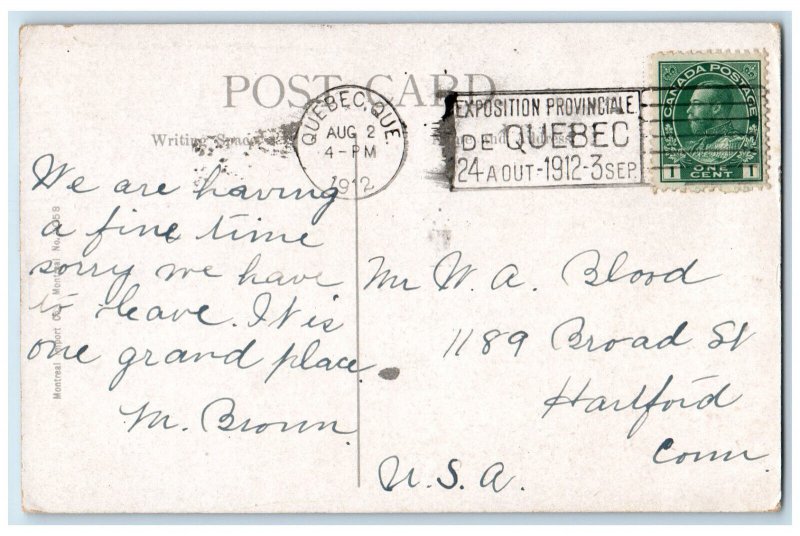 POST CARD
Writing Space
QUEBEC, QUE.
AUG 2
4-PM
1912
EXPOSITION PROVINCIALE
DE QUEBEC
24 AOUT-1912-3 SEP.
CANADA POSTAGE
1 ONE CENT 1
We are having
a fine time
sorry we have
to leave. It is
one grand place.
M. Brown
Mr W. A. Blood
1189 Broad St
Hartford
Conn.
U.S.A.
Montreal Import Co., Montreal No.